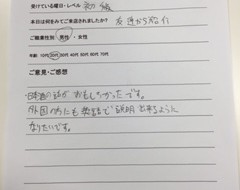 受けている曜日・レベル 初級
本日は何をみてご来店されましたか? 友達から紹介
ご職業性別 男性・女性
年齢 10代 20代 30代 40代 50代 60代 70代
ご意見・ご感想
日本語の話がおもしろかったです。
外国の方にも英語で説明出来るように
なりたいです。